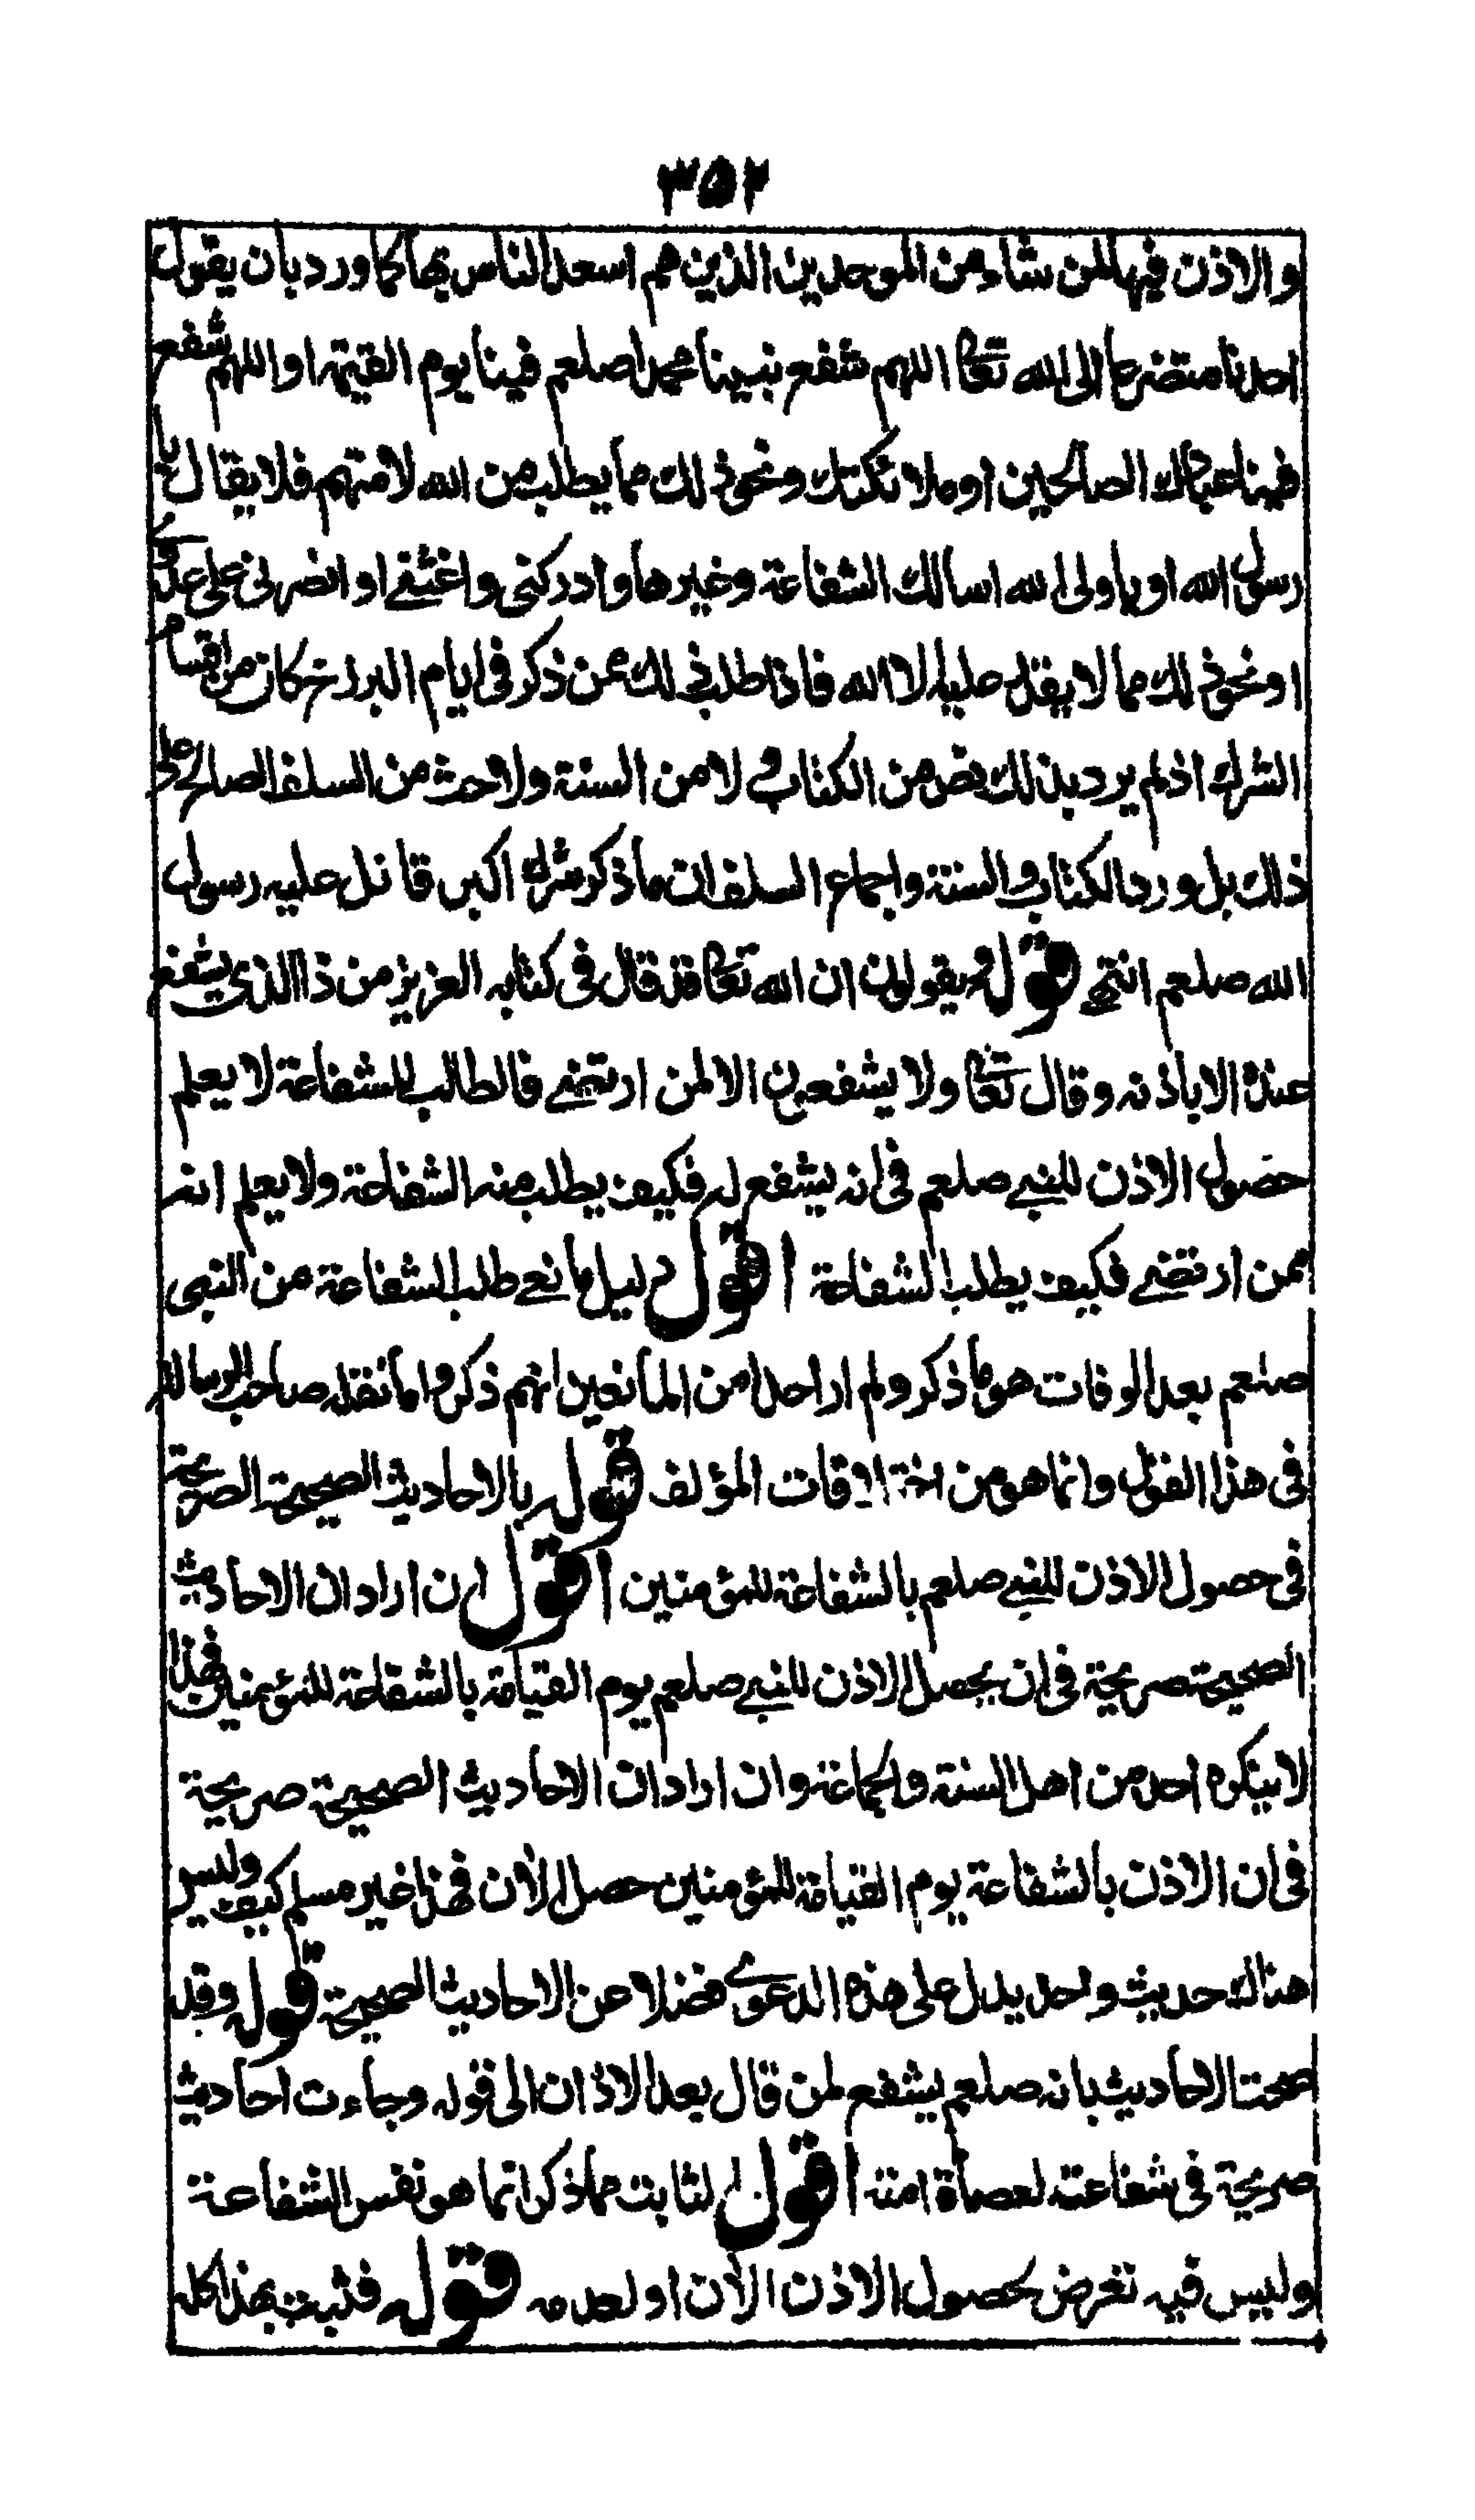 ٣٥٢
والاذن فيها لمن شاء من الموحدين الذين هم اسعد الناس بها كما ورد بان يقول
احدنا متضرعا الى الله تعالى اللهم شفع نبينا محمدا صلعم فينا يوم القيمة او اللهم شفع
فينا عبادك الصالحين او ملائكتك ونحو ذلك مما يطلب من الله لا منهم فلا يقال يا
رسول الله او يا ولى الله اسالك الشفاعة وغيرها وادركنى واغثنے او انصرنى على عدوى
او نحو ذلك مما لا يقدر عليه الا الله فاذا طلب ذلك ممن ذكر فى ايام البرزخ كان من اقسام
الشرك اذ لم يرد بذلك نص من الكتاب ولا من السنة ولا اثر من السلف الصالح على
ذلك بل ورد الكتاب والسنة واجماع السلف ان ما ذكر شرك اكبر قاتل عليه رسول
الله صلعم انتهى قوله يقولون ان الله تعالى قد قال فى كتابه العزيز من ذا الذى يشفع
عنده الا باذنه وقال تعالى ولا يشفعون الا لمن ارتضے فالطالب للشفاعة لا يعلم
حصول الاذن للنبے صلعم فى انه يشفع له فكيف يطلب منه الشفاعة ولا يعلم انه
ممن ارتضے فكيف يطلب الشفاعة اقول دليل مانعے طلب الشفاعة من النبى
صلعم بعد الوفات هو ما ذكر ولم ار احدا من المانعين انهم ذكروا ما نقله صاحب الرسالة
فى هذا القول وانما هو من اختلاقات المؤلف قوله بالاحاديث الصحيحة الصريحة
فى حصول الاذن للنبے صلعم بالشفاعة للمؤمنين اقول ان اراد ان الاحاديث
الصحيحة صريحة فى ان يحصل الاذن للنبے صلعم يوم القيامة بالشفاعة للمؤمنين فهذا
لا ينكره احد من اهل السنة والجماعة وان اراد ان الاحاديث الصحيحة صريحة
فى ان الاذن بالشفاعة يوم القيامة للمؤمنين حصل الآن فهذا غير مسلم كيف وليس
هناك حديث واحد يدل على هذه الدعوے فضلا عن الاحاديث الصحيحة قوله وقد
صحت الاحاديث بانه صلعم يشفع لمن قال بعد الاذان الى قوله وجاءت احاديث
صريحة فى شفاعته لعصاة امته اقول الثابت مما ذكر انما هو نفس الشفاعة
وليس فيه تعرض بحصول الاذن الآن او لعدمه قوله فثبت بهذا كله